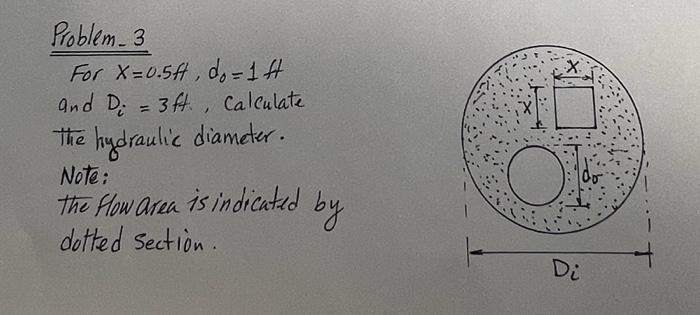 Problem_3
For X=0.5ft, do=1ft
and Di = 3ft., Calculate
The hydraulic diameter.
Note:
The Flow area is indicated by
dotted section.
X
X
do
Di